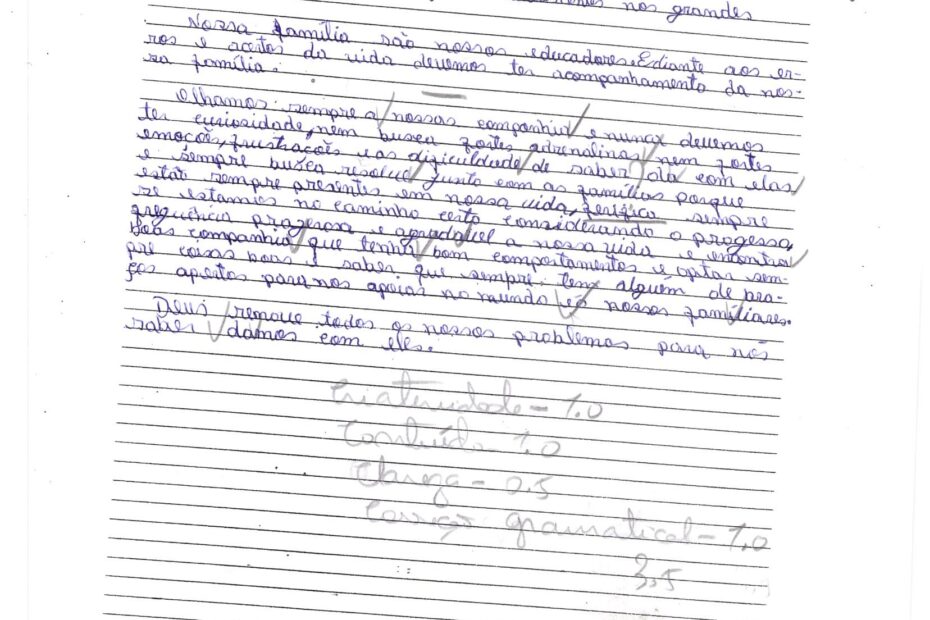 nos grandes
Nossa família são nossos educadores. Ediante aos er-
ros e aceitos da vida devemos ter acompanhamento da nos-
sa família.
Olhamos sempre a nossas companhia e nunca devemos
ter curiosidade, nem busca fortes adrenalinas nem fortes
emoções, frustrações e as dificuldade de saber da com elas
e sempre busca resolve junto com as famílias porque
estão sempre presentes em nossa vida, sempre
se estamos no caminho certo considerando o progessa,
frequência prazerosa e agradavel a nossa vida e encontra
boas companhia que tenha bom comportamentos e optar sem-
pre coisas boas e saber que sempre tem alguém de bra-
ços apertos para nos apoiar no mundo é nossos familiares.
Deus remove todos os nossos problemas para nós
saber damos com eles.
Criatividade - 1.0
Conteúdo 1.0
Clareza - 0.5
Correção gramatical - 1.0
3.5